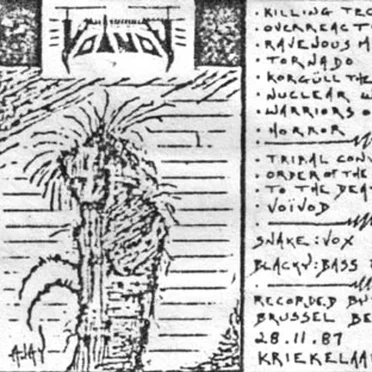 VOIVOD
· KILLING TEC
· OVERREACT
· RAVENOUS M
· TORNADO
· KORGÜLL THE
· NUCLEAR W
· WARRIORS O
· HORROR
· TRIBAL CONV
· ORDER OF THE
· TO THE DEA
· VOÏVOD
SNAKE: VOX
BLACKY: BASS
RECORDED BY
BRUSSEL BE
28.11.87
KRIEKELAA
AJAY